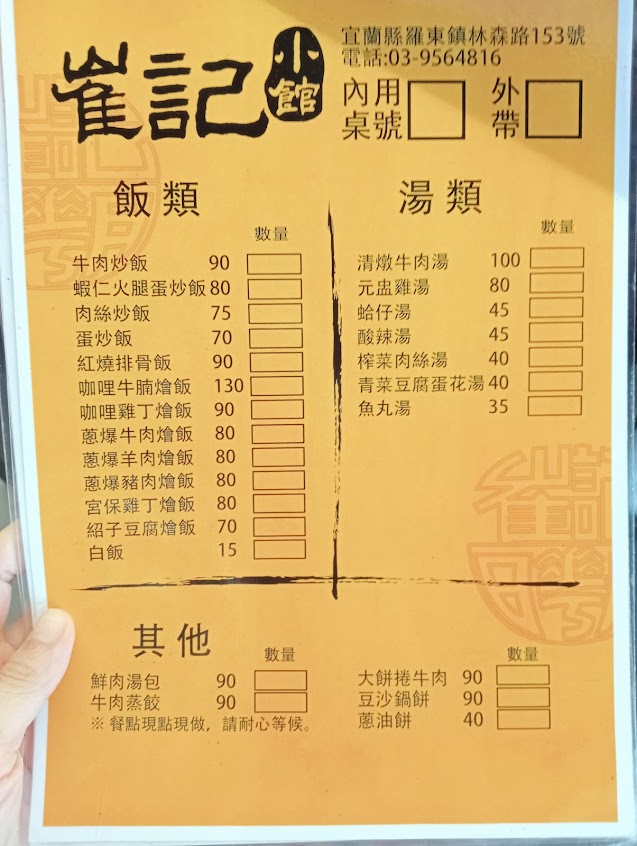 崔記小館
宜蘭縣羅東鎮林森路153號
電話:03-9564816
內用桌號
外帶
飯類
數量
牛肉炒飯 90
蝦仁火腿蛋炒飯 80
肉絲炒飯 75
蛋炒飯 70
紅燒排骨飯 90
咖哩牛腩燴飯 130
咖哩雞丁燴飯 90
蔥爆牛肉燴飯 80
蔥爆羊肉燴飯 80
蔥爆豬肉燴飯 80
宮保雞丁燴飯 80
紹子豆腐燴飯 70
白飯 15
湯類
數量
清燉牛肉湯 100
元盅雞湯 80
蛤仔湯 45
酸辣湯 45
榨菜肉絲湯 40
青菜豆腐蛋花湯 40
魚丸湯 35
其他
數量
鮮肉湯包 90
牛肉蒸餃 90
※ 餐點現點現做，請耐心等候。
數量
大餅捲牛肉 90
豆沙鍋餅 90
蔥油餅 40